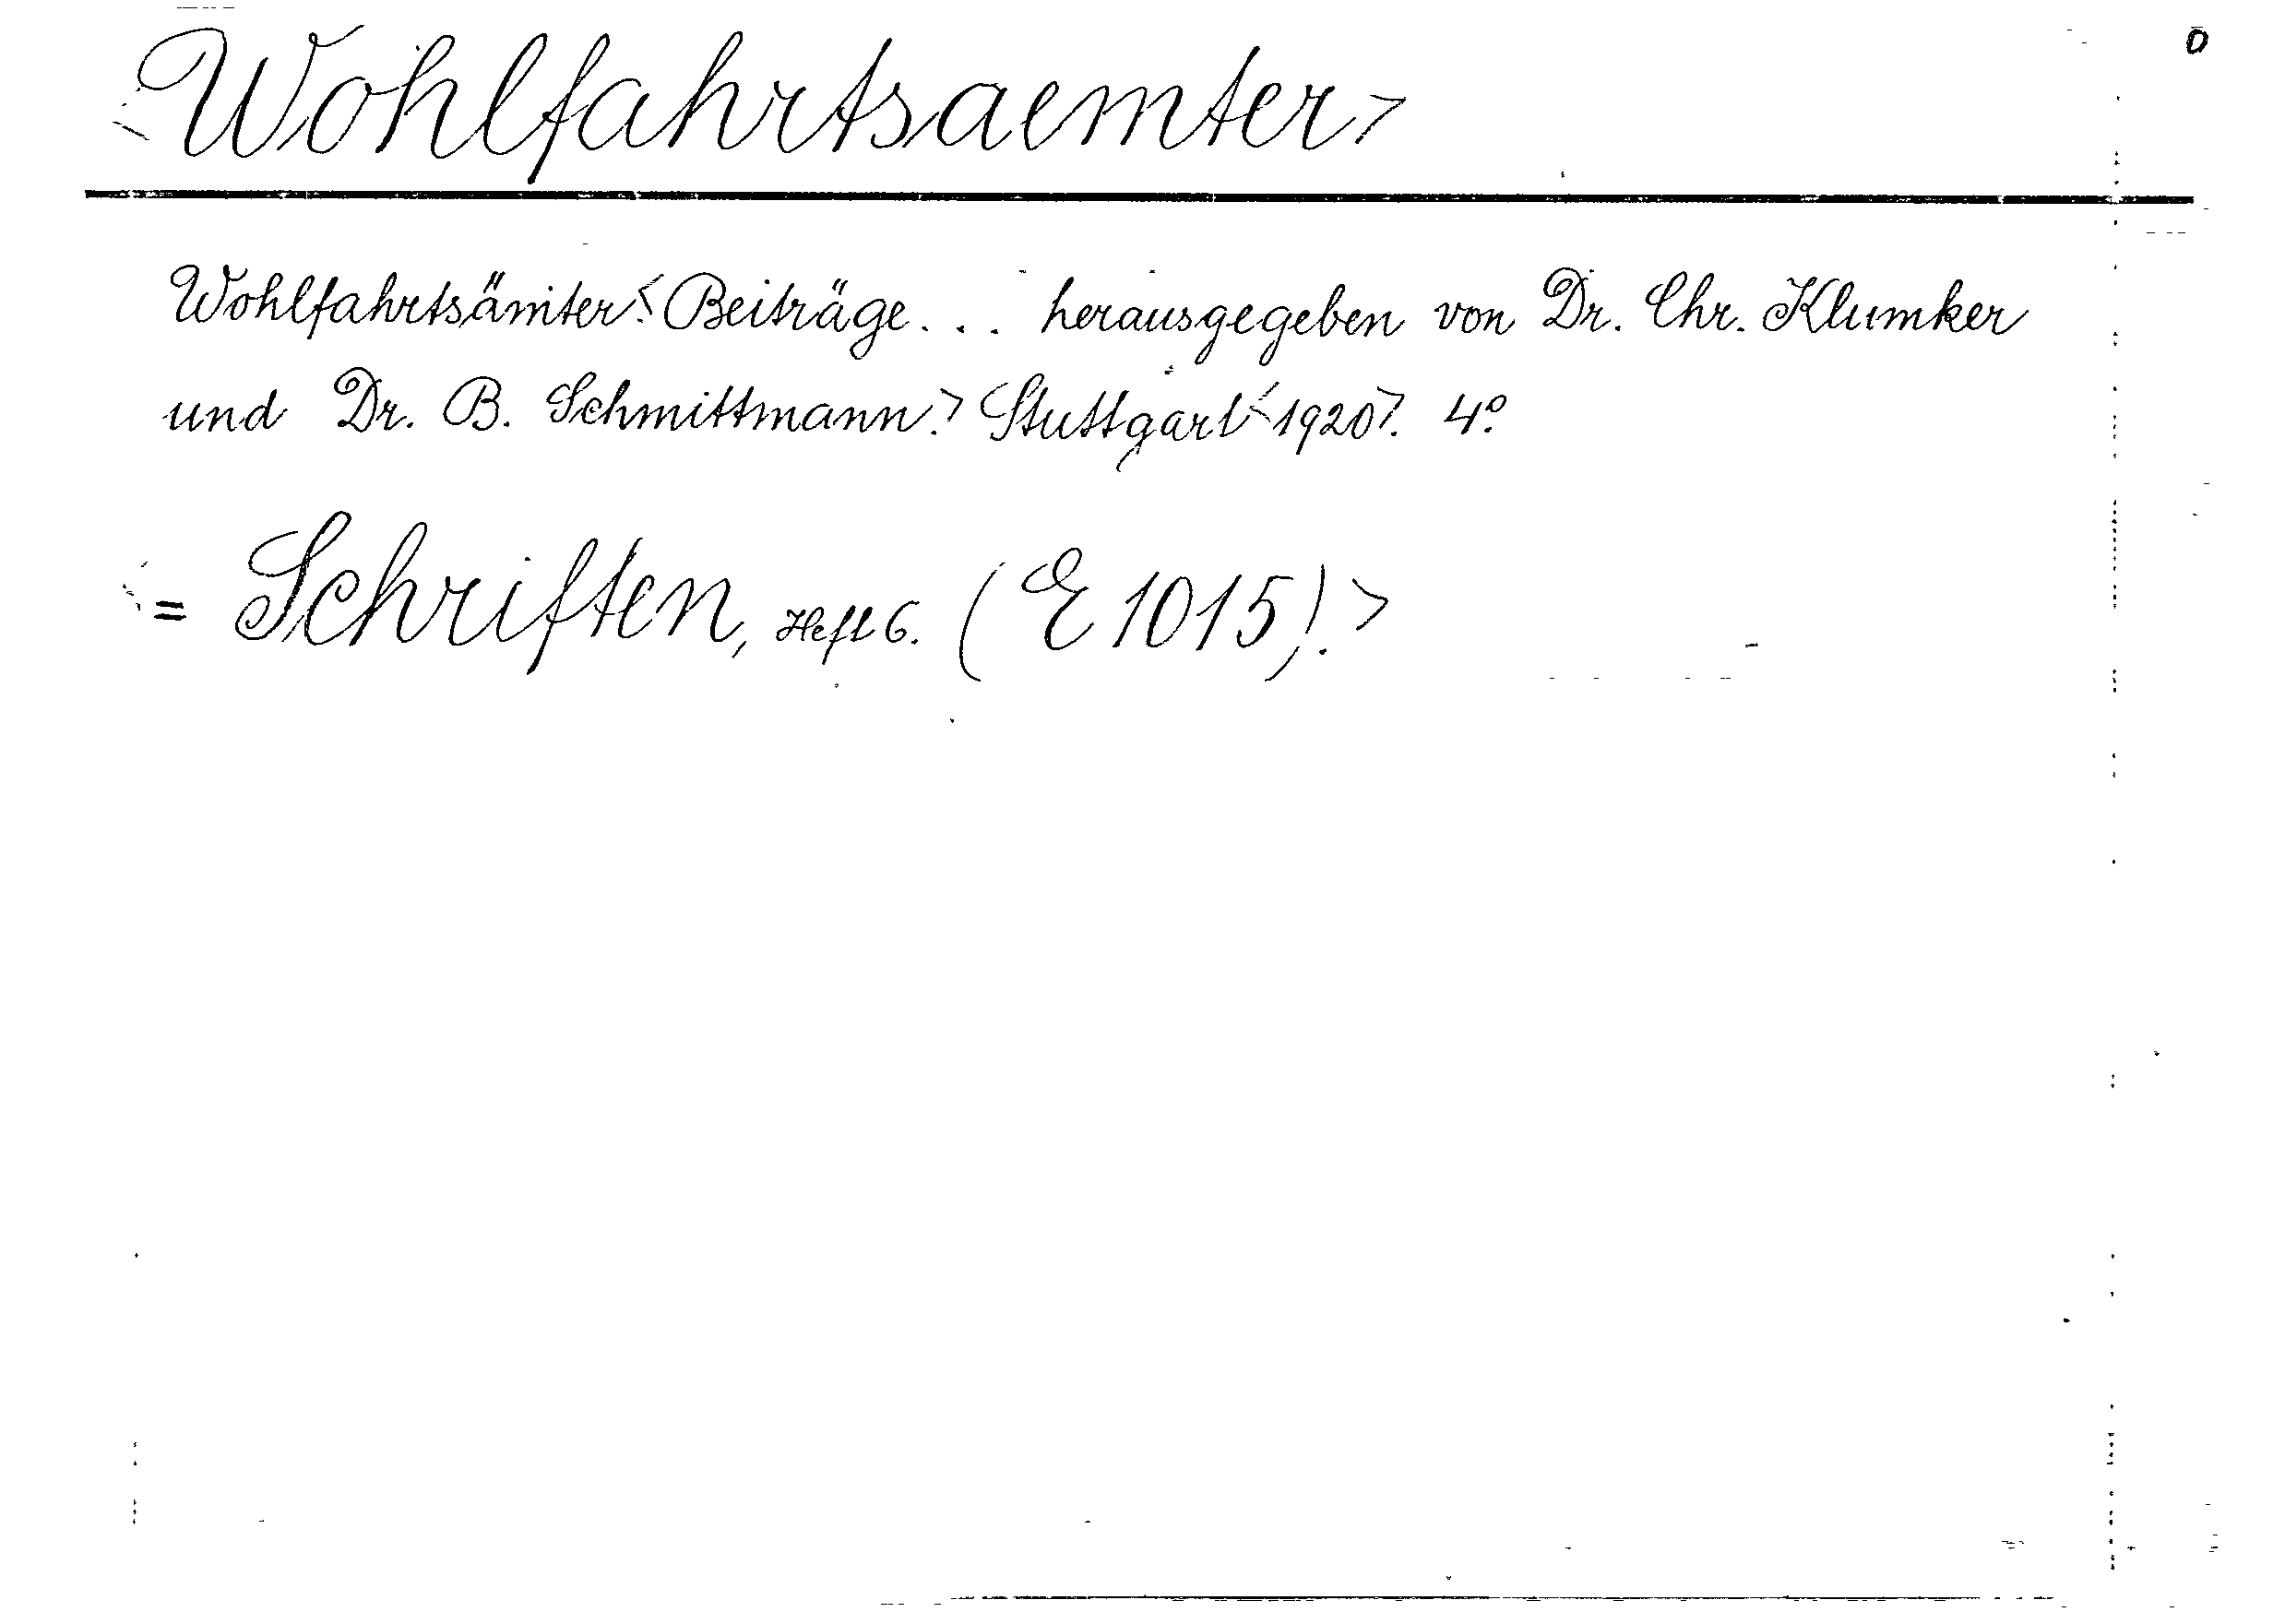 0
<Wohlfahrtsaemter>
Wohlfahrtsämter.<Beiträge... herausgegeben von Dr. Chr. Klumker
und Dr. B. Schmittmann.> Stuttgart<1920>. 4º
<= Schriften, Heft 6. (E 1015).>